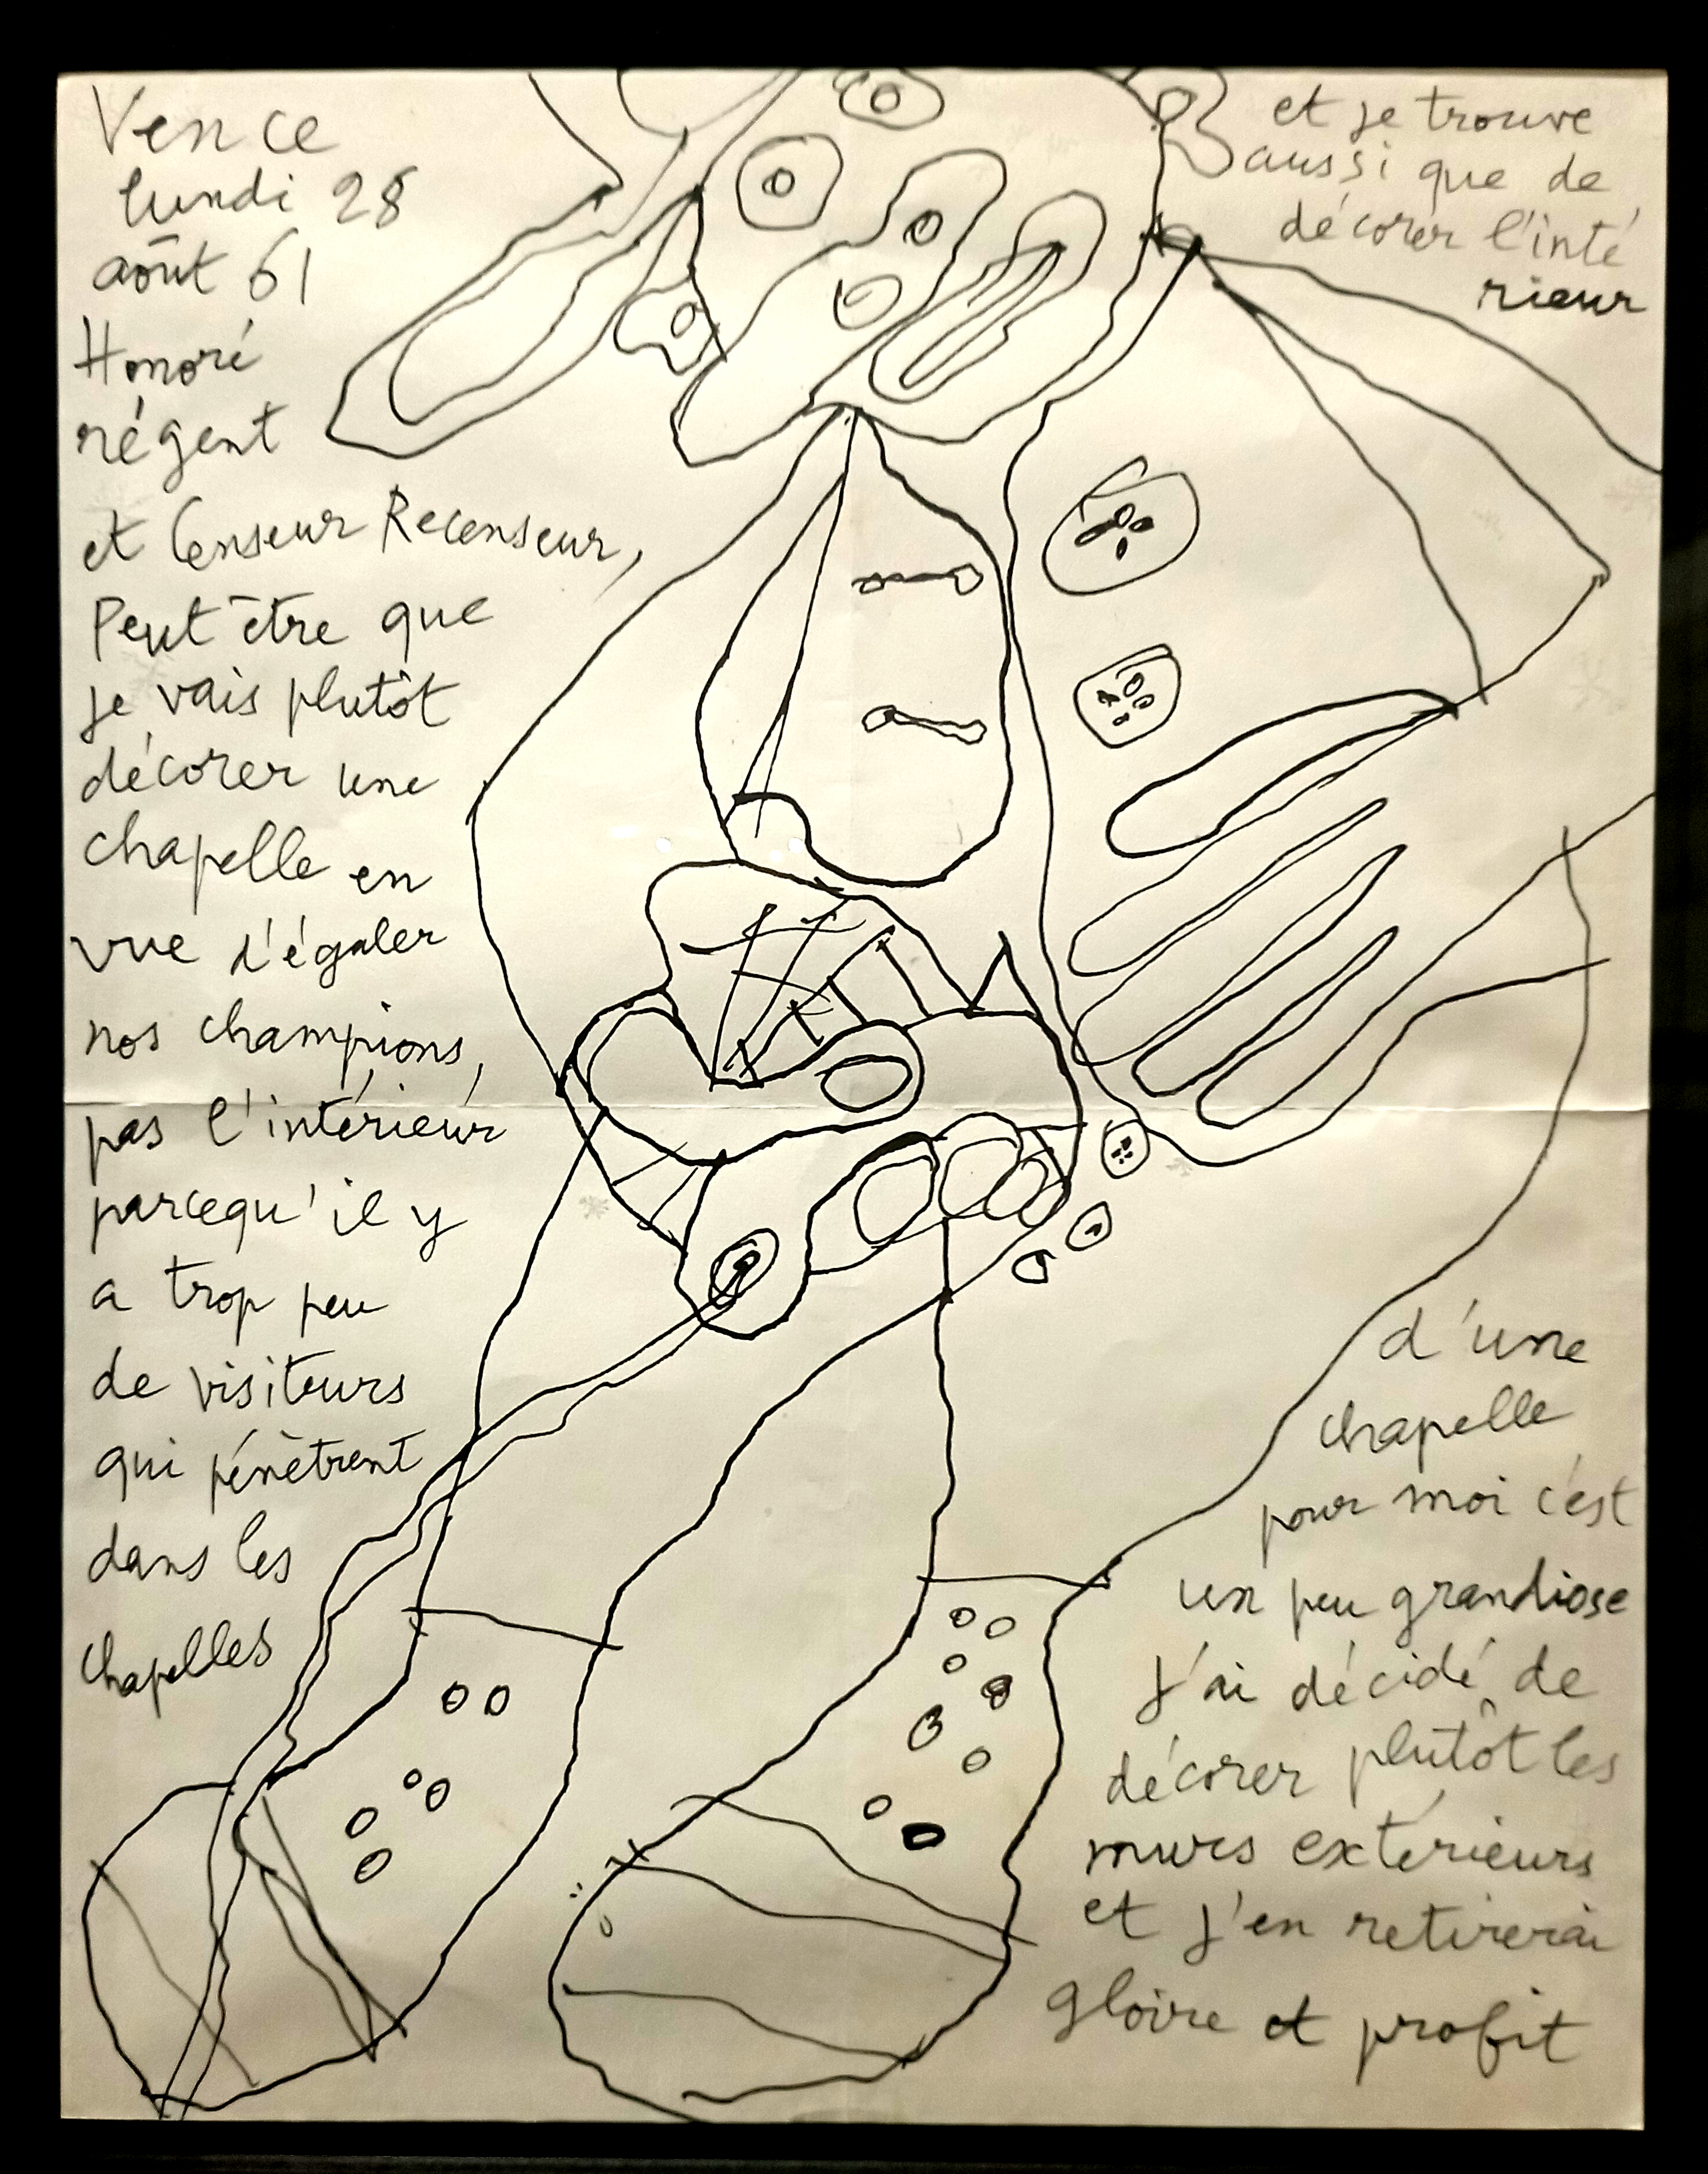 Vence
lundi 28
août 61
Honoré
régent
et Censeur Recenseur,
Peut être que
je vais plutôt
décorer une
chapelle en
vue d'égaler
nos champions,
pas l'intérieur
parcequ'il y
a trop peu
de visiteurs
qui pénètrent
dans les
chapelles
et je trouve
aussi que de
décorer l'inté
rieur
d'une
chapelle
pour moi c'est
un peu grandiose
J'ai décidé de
décorer plutôt les
murs extérieurs
et j'en retirerai
gloire et profit